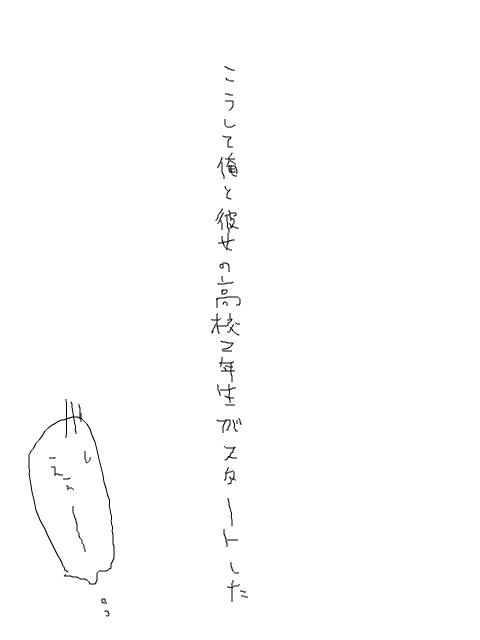 こうして俺と彼女の高校2年生がスタートした